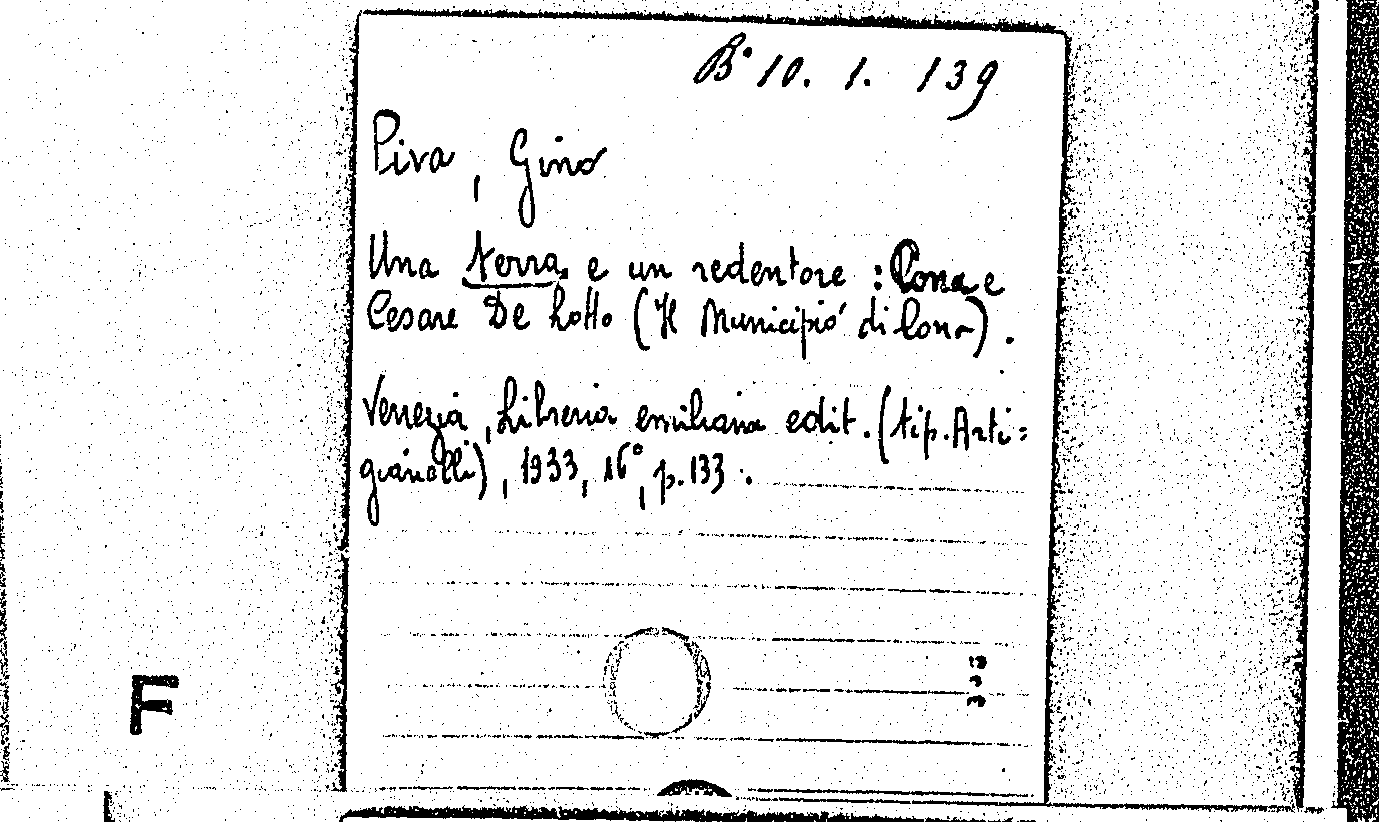 B° 10. 1. 139
Piva, Gino
Una terra e un redentore : Cona e
Cesare De Lotto (Il Municipio di Cona).
Venezia, Libreria emiliana edit. (tip. Arti=
gianelli), 1933, 16°, p. 133.
F